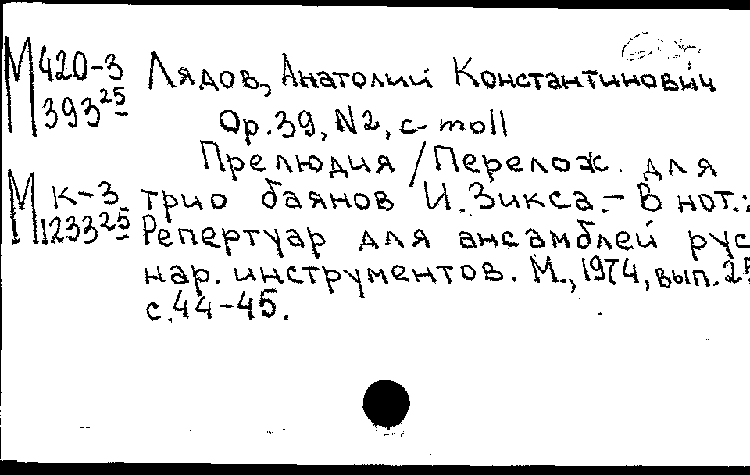 М 420-3 Лядов, Анатолий Константинович
393 25 Op.39, N2, c-moll
Прелюдия / Перелож. для
М к-3 трио баянов И. Зикса. - В нот.:
1233 25 Репертуар для ансамблей рус
нар. инструментов. М., 1974, вып. 25
с.44-45.